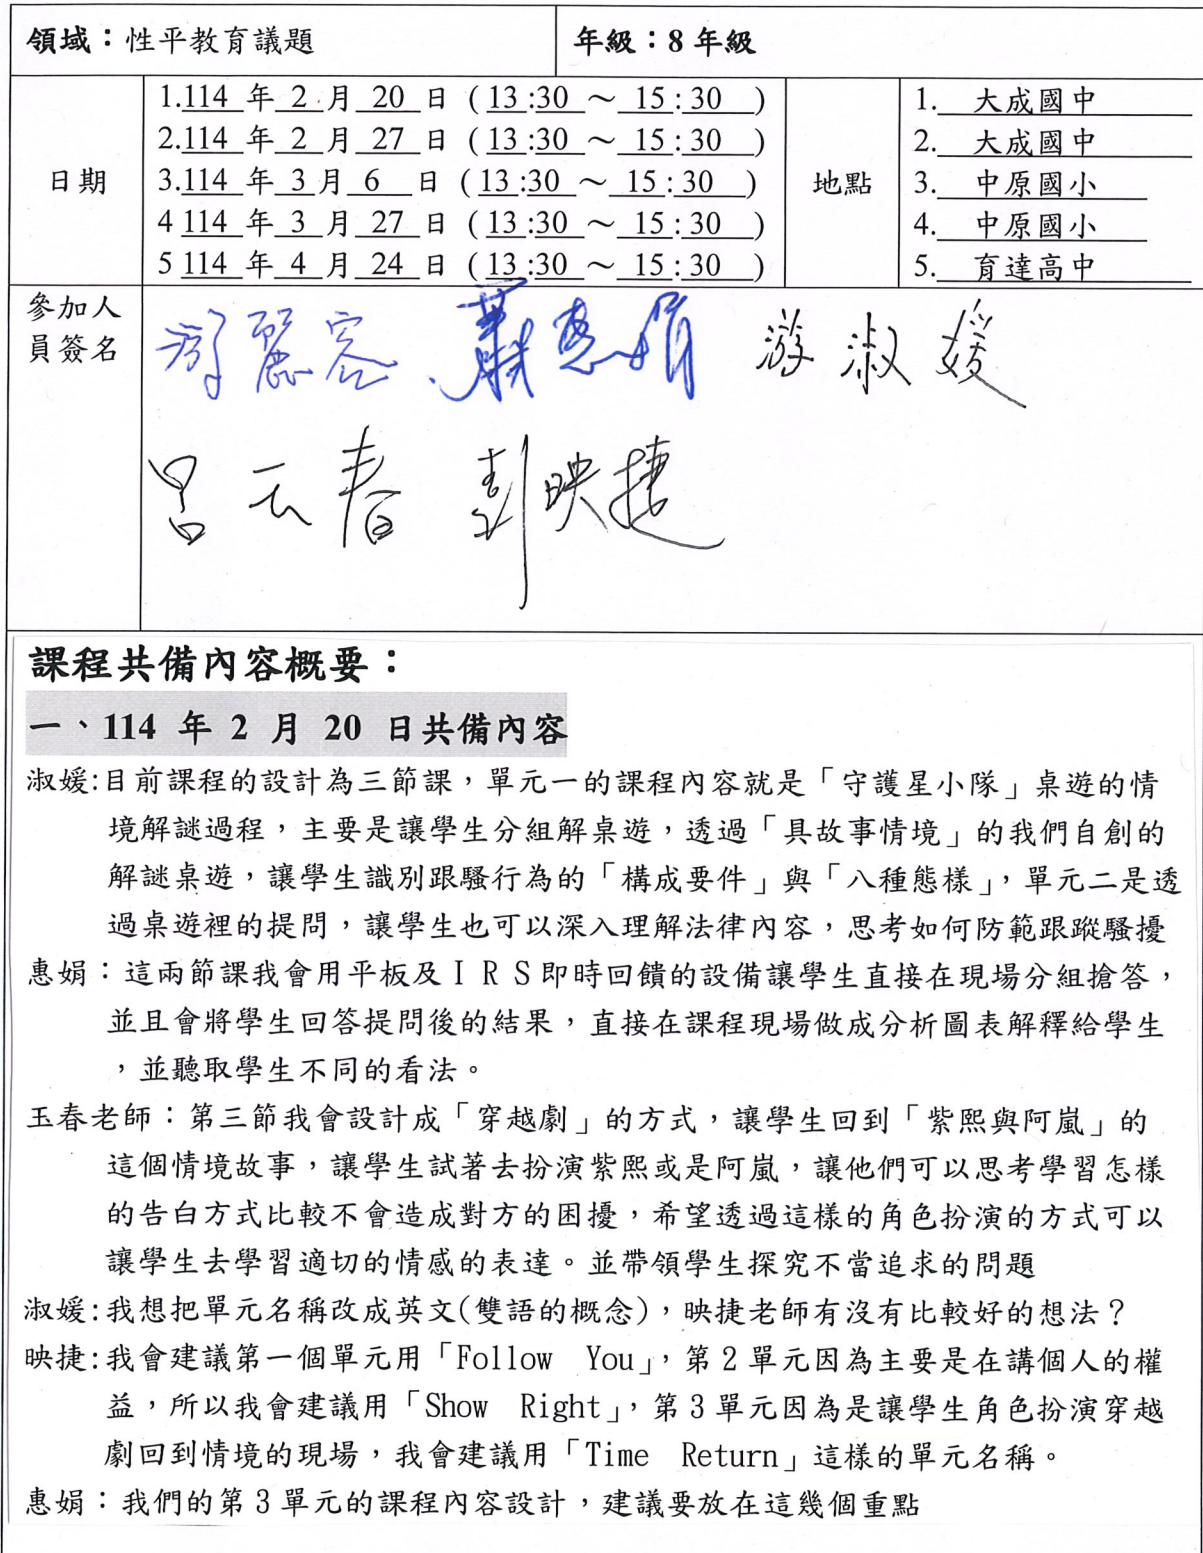 領域：性平教育議題
年級：8 年級
日期
1.114 年 2 月 20 日 ( 13:30 ～ 15:30 )
2.114 年 2 月 27 日 ( 13:30 ～ 15:30 )
3.114 年 3 月 6 日 ( 13:30 ～ 15:30 )
4 114 年 3 月 27 日 ( 13:30 ～ 15:30 )
5 114 年 4 月 24 日 ( 13:30 ～ 15:30 )
地點
1. 大成國中
2. 大成國中
3. 中原國小
4. 中原國小
5. 育達高中
參加人
員簽名
游麗容 蕭惠娟 游淑媛
呂玉春 彭映捷
課程共備內容概要：
一、114 年 2 月 20 日共備內容
淑媛:目前課程的設計為三節課，單元一的課程內容就是「守護星小隊」桌遊的情
境解謎過程，主要是讓學生分組解桌遊，透過「具故事情境」的我們自創的
解謎桌遊，讓學生識別跟騷行為的「構成要件」與「八種態樣」，單元二是透
過桌遊裡的提問，讓學生也可以深入理解法律內容，思考如何防範跟蹤騷擾
惠娟：這兩節課我會用平板及ＩＲＳ即時回饋的設備讓學生直接在現場分組搶答，
並且會將學生回答提問後的結果，直接在課程現場做成分析圖表解釋給學生
，並聽取學生不同的看法。
玉春老師：第三節我會設計成「穿越劇」的方式，讓學生回到「紫熙與阿嵐」的
這個情境故事，讓學生試著去扮演紫熙或是阿嵐，讓他們可以思考學習怎樣
的告白方式比較不會造成對方的困擾，希望透過這樣的角色扮演的方式可以
讓學生去學習適切的情感的表達。並帶領學生探究不當追求的問題
淑媛:我想把單元名稱改成英文(雙語的概念)，映捷老師有沒有比較好的想法？
映捷:我會建議第一個單元用「Follow You」，第 2 單元因為主要是在講個人的權
益，所以我會建議用「Show Right」，第 3 單元因為是讓學生角色扮演穿越
劇回到情境的現場，我會建議用「Time Return」這樣的單元名稱。
惠娟：我們的第 3 單元的課程內容設計，建議要放在這幾個重點